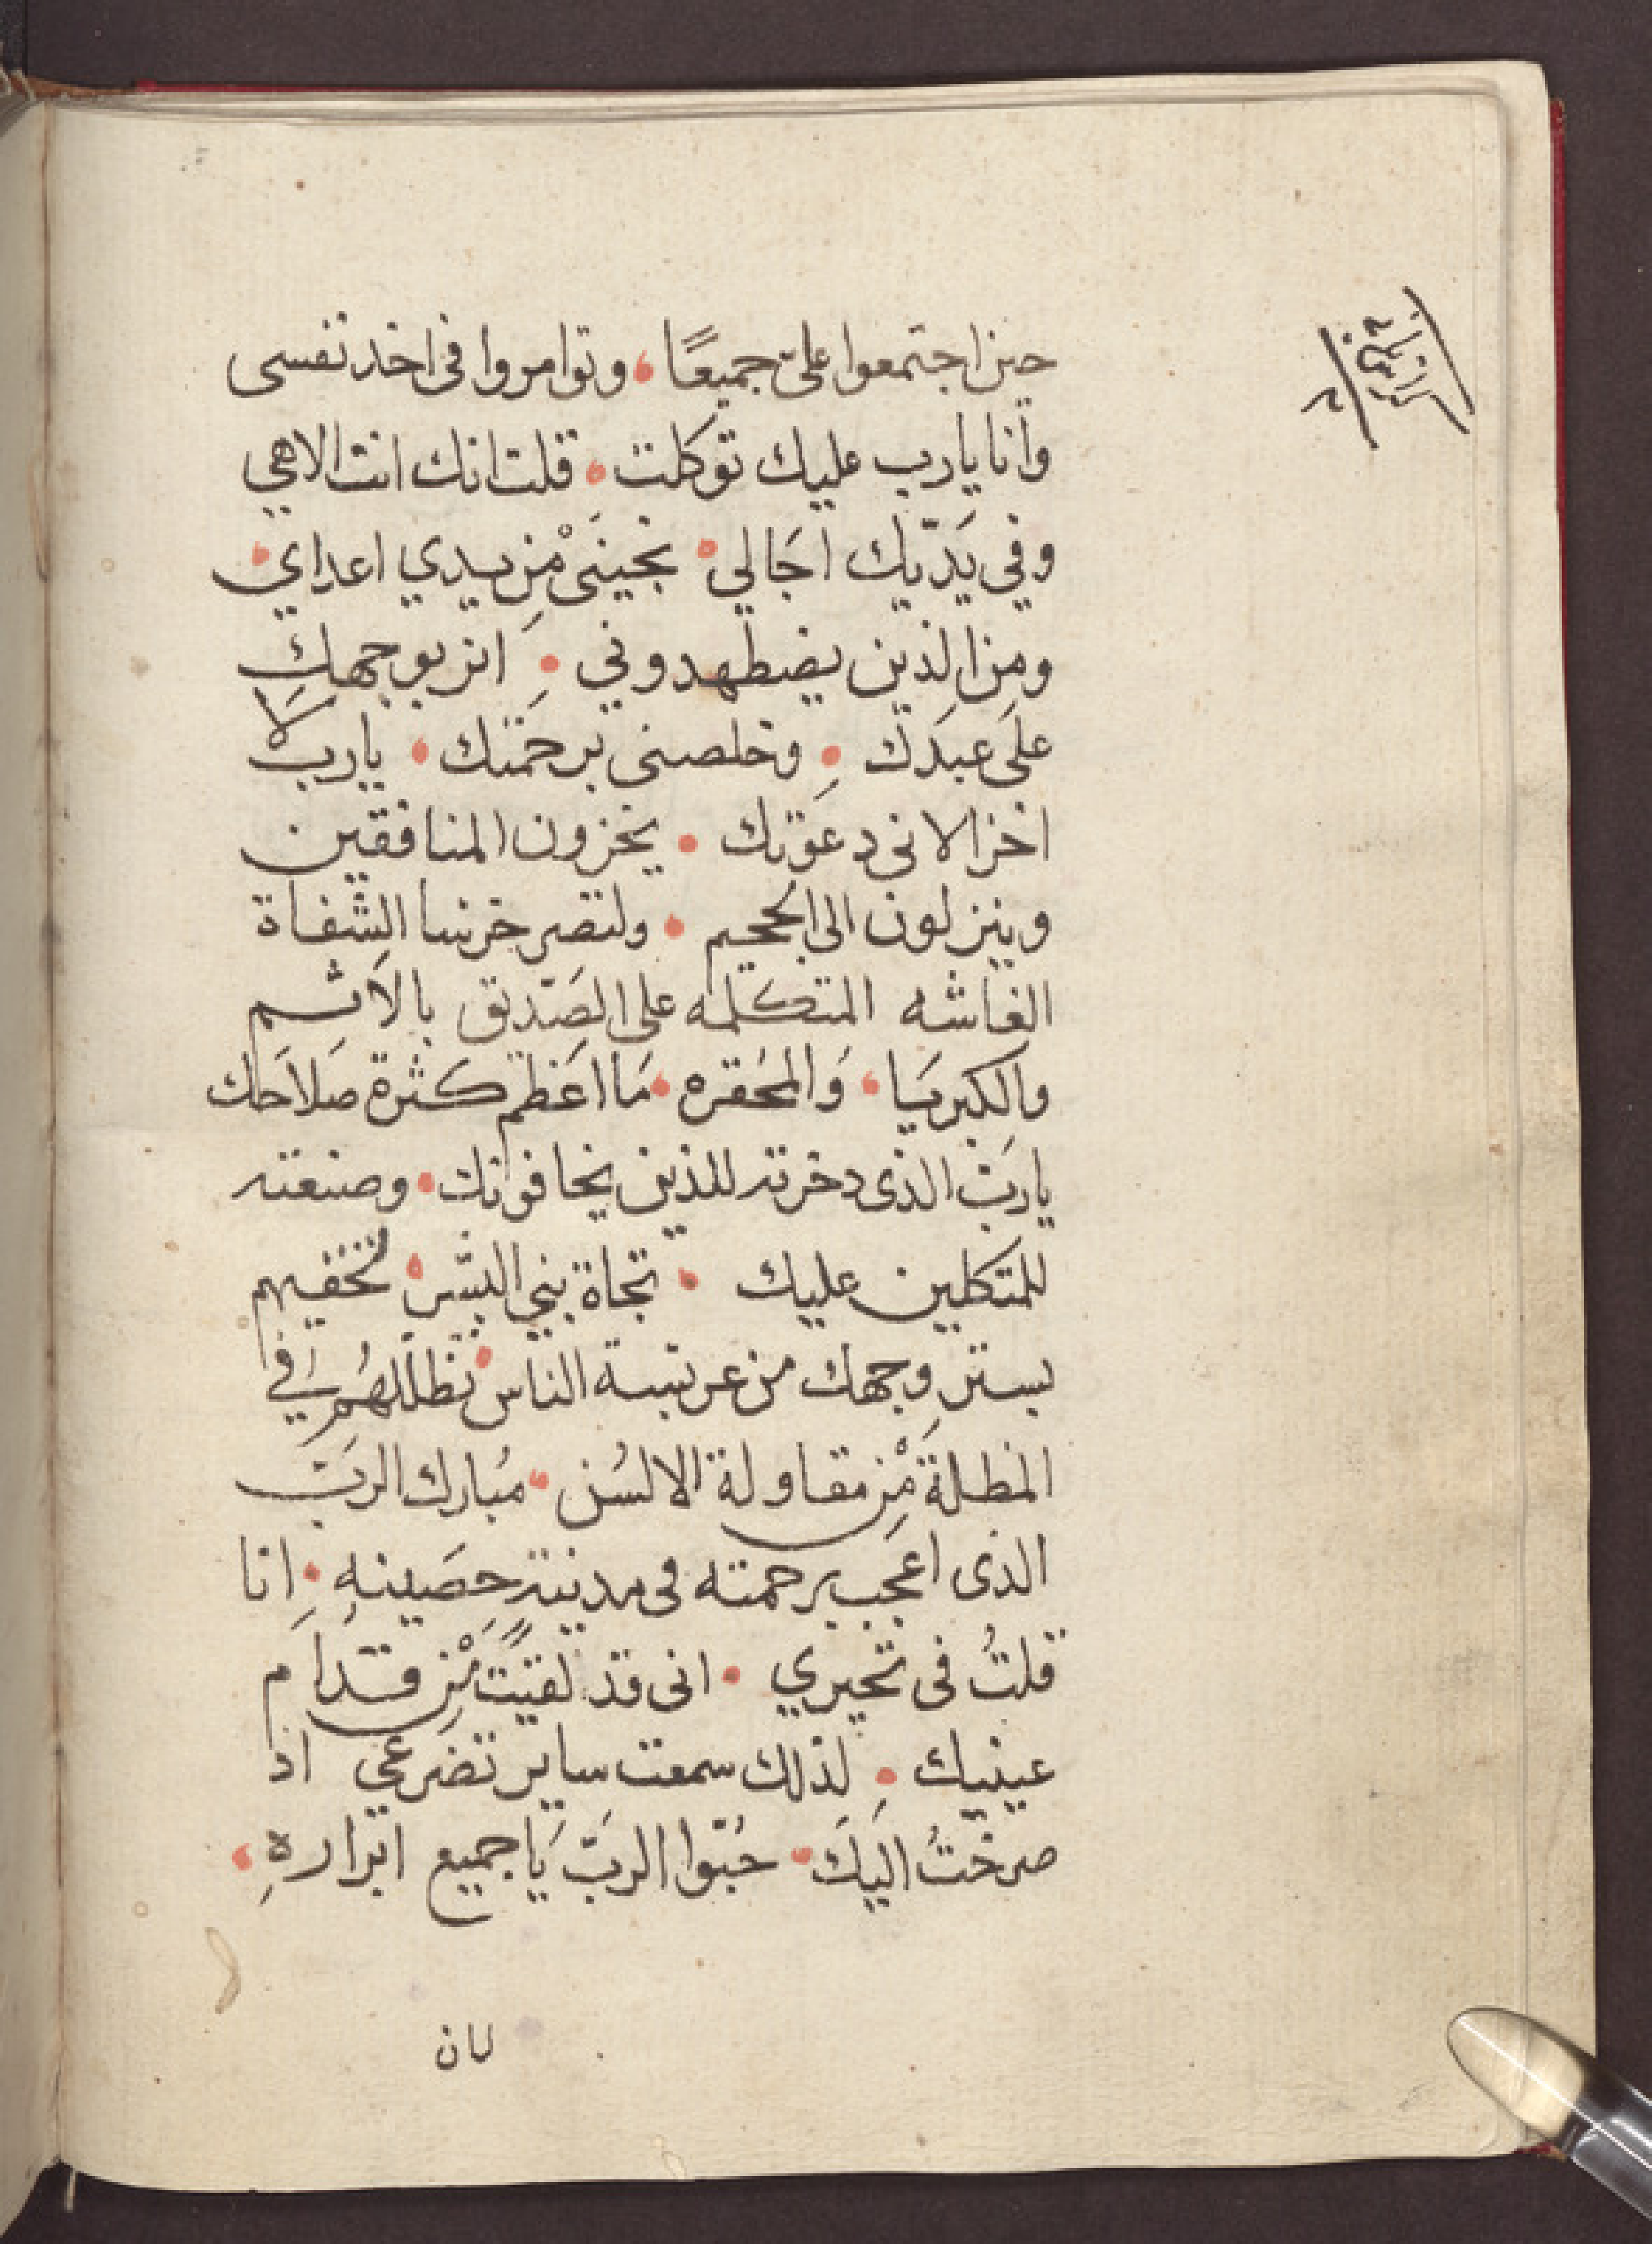 حين اجتمعوا علىّ جميعًا، وتوامروا فى اخد نفسى
وانا يارب عليك توكلت، قلت انك انت الاهي
وفي يَدّيك اجَالي، نجينىَ مْنِ يدي اعداي،
ومِن الذين يضطهدوني، انر بوجهك
علَى عبدَك، وخلصنى برحمتك، يارب لا
اخز الانى دعَوتك، يخزون المنافقين
وينزلون الى الجحيم، ولتصر خرسا الشفاة
الغاشه المتكلمه على الصَدّيق بالاَثم
والكبريَا، وَالمحُقره، مَا اعَظم كثرة صلاَحك
يارَبّ الذى دخرته للذين يخافوَنك، وصنعته
للمَتكلين عليك، تجاة بني البشر، تخفيهم
بستر وِجهك من عربسة الناس، تظللهُم َفي
المظلةَ مْنِ مقاولة الالسُن، مُبارك الربّ
الذى اعَجب برحمته فى مدينةٍ حصَينهِ، انا
قلتُ فى تحيري، انى قد لقيتَ مْنِ قدام
عينيك، لذلك سمعت ساير تضَرعي اد
صرختُ اليَكَ، حُبّوا الربّ يَاجميع ابرارهِ،
لان